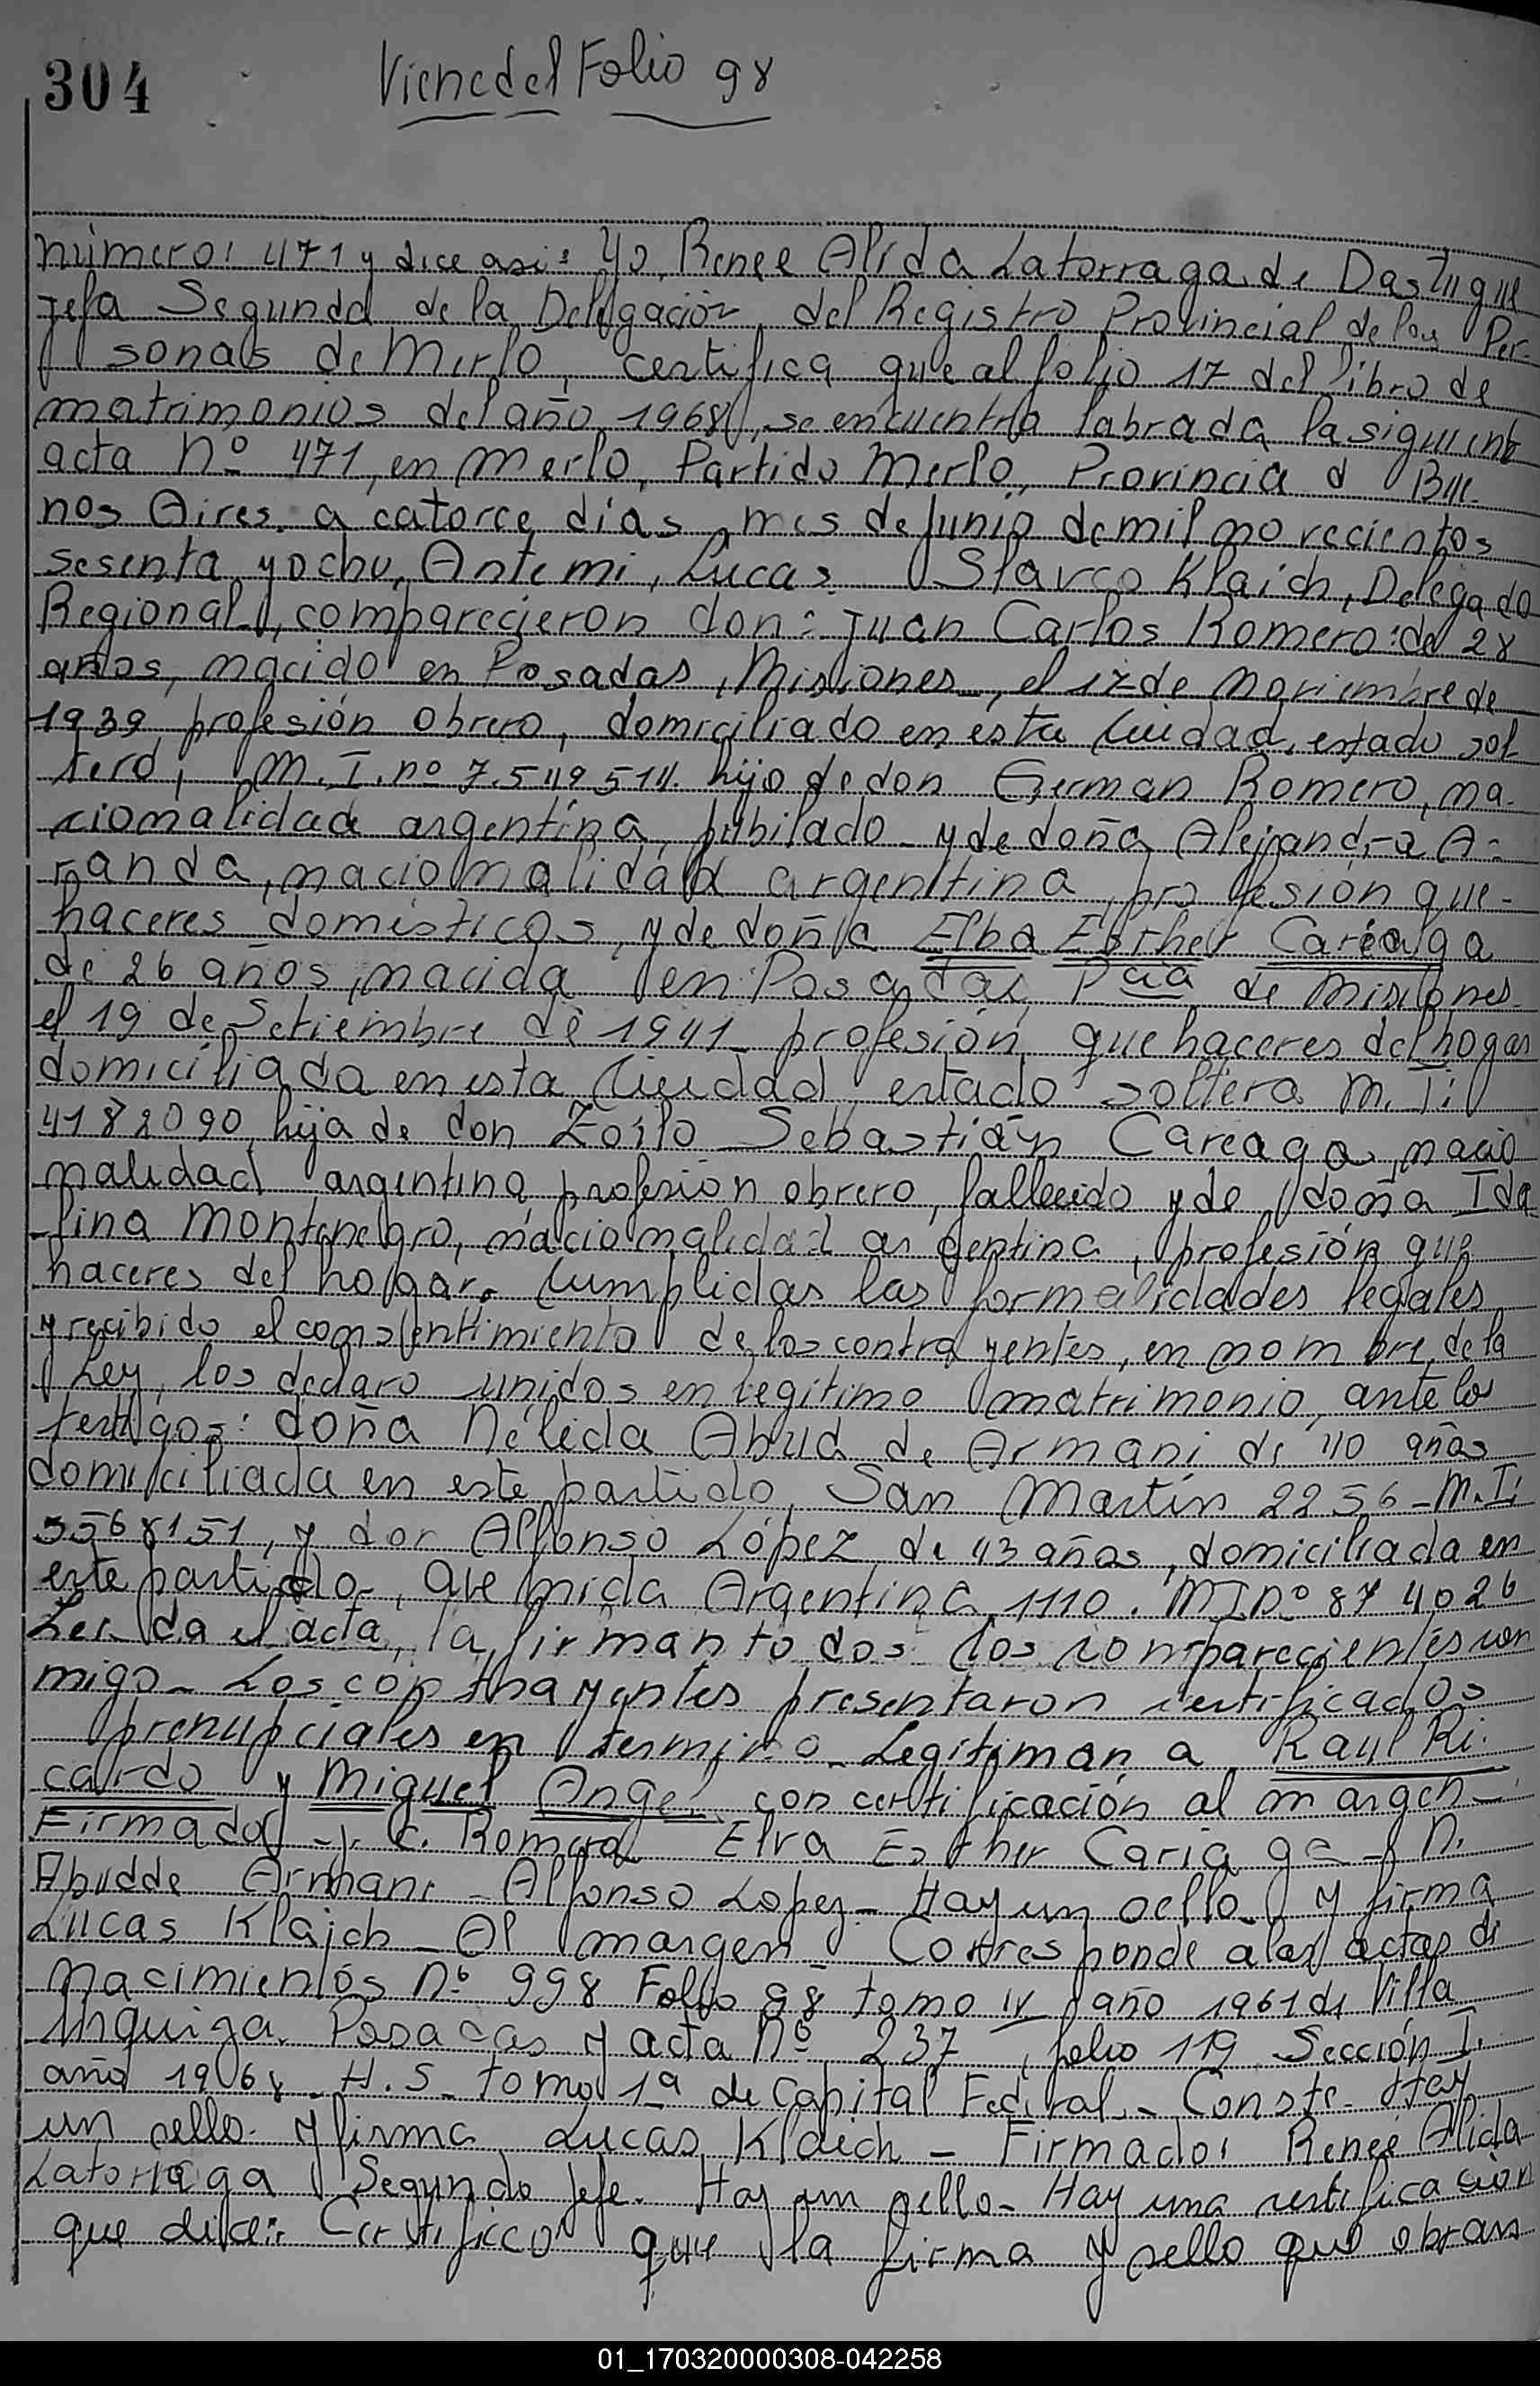 304
Viene del Folio 98
número: 471 y dice asi: Yo, Renee Alida Latorraga de Dastugue
Jefa Segunda de la Delegación, del Registro Provincial de las Per-
sonas de Merlo, certifica que al folio 17 del libro de
matrimonios del año 1968, se encuentra labrada la siguiente
acta nº 471, en Merlo, Partido Merlo, Provincia d Bue-
nos Aires, a catorce días, mes de Junio de mil novecientos
sesenta y ocho, Ante mi, Lucas Slavco Klaich, Delegado
Regional, comparecieron don: Juan Carlos Romero: de 28
años, nacido en Posadas, Misiones, el 17 de Noviembre de
1939 profesión obrero, domiciliado en esta Ciudad, estado sol
tero, M.I. nº 7.549.514. hijo de don German Romero, na-
cionalidad argentina, jubilado y de doña Alejandra A-
randa, nacionalidad argentina, profesión que-
haceres domésticos, y de doña Elba Esther Careaga
de 26 años, nacida en Posadas, Pcia de Misiones
el 19 de Setiembre de 1941 profesión quehaceres del hogar
domiciliada en esta Ciudad, estado soltera M.I:
4182090, hija de don Zoilo Sebastián Careaga, nacio
nalidad argentina, profesión obrero, fallecido y de doña Ida
lina Montenegro, nacionalidad argentina, profesión que
haceres del hogar. Cumplidas las formalidades legales
y recibido el consentimiento de los contrayentes, en nombre de la
Ley, los declaro unidos en legítimo matrimonio, ante los
testigos: doña Nélida Abud de Armani de 40 años
domiciliada en este partido, San Martín 2256 - M.I:
5568151, y don Alfonso López de 43 años, domiciliada en
este partido, Avenida Argentina 1110. MI nº 874026
Leida el acta, la firman todos los comparecientes con
migo - Los contrayentes presentaron certificados
prenupciales en termino - Legitiman a Raul Ri-
cardo y Miguel Angel con certificación al margen -
Firmado - J. C. Romero Elva Esther Cariaga - N.
Abudde Armani - Alfonso Lopez - Hay un sello y firma
Lucas Klaich - Al margen Corresponde a las actas de
nacimientos nº 998 Folio 98 tomo IV año 1961 de Villa
Urquiza. Posadas y acta nº 237, folio 119 Sección I.
año 1968 - H.S. tomo 1ª de Capital Federal - Conste - Hay
un sello y firma Lucas Klaich - Firmado: Renee Alida
Latorraga Segundo Jefe. Hay un sello - Hay una certificacion
que dice: Certifico que la firma y sello que obran
01_170320000308-042258